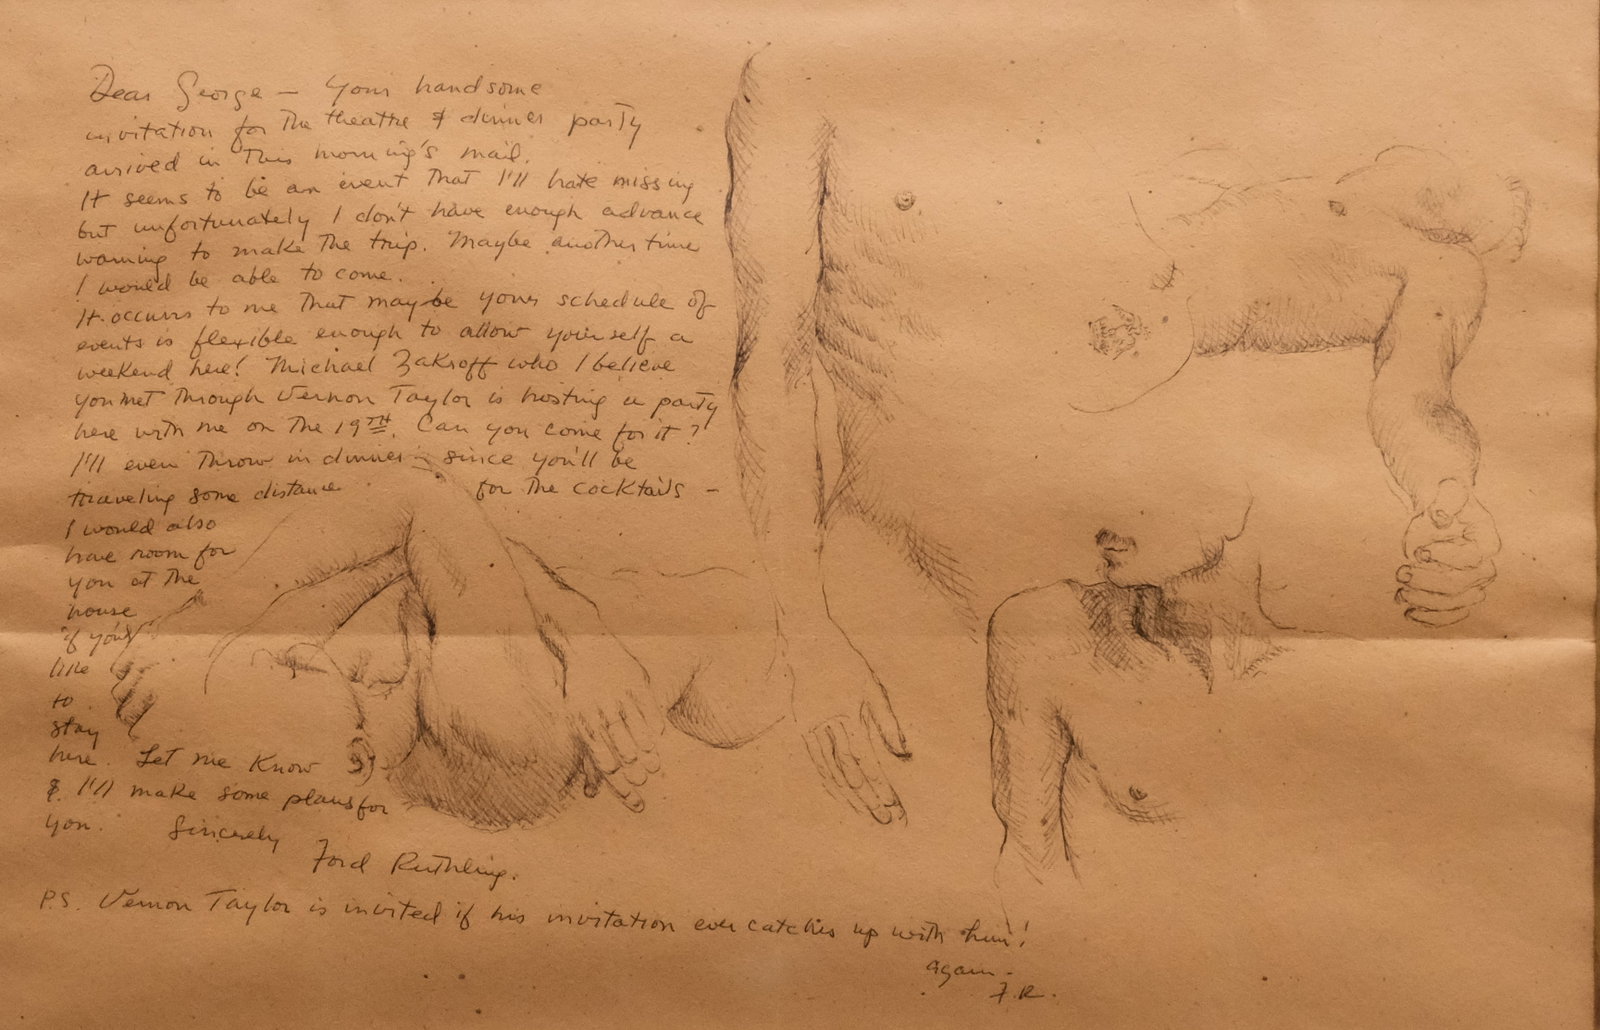 Dear George — Your handsome
invitation for the theatre & dinner party
arrived in this morning's mail.
It seems to be an event that I'll hate missing
but unfortunately I don't have enough advance
warning to make the trip. Maybe another time
I would be able to come.
It occurs to me that maybe your schedule of
events is flexible enough to allow yourself a
weekend here! Michael Zakroff who I believe
you met through Vernon Taylor is hosting a party
here with me on the 19TH. Can you come for it?
I'll even throw in dinner — since you'll be
traveling some distance for the cocktails —
I would also
have room for
you at the
house
if you'd
like
to
stay
here. Let me know
& I'll make some plans for
you. Sincerely
Ford Ruthling.
P.S. Vernon Taylor is invited if his invitation ever catches up with him!
again —
F.R.